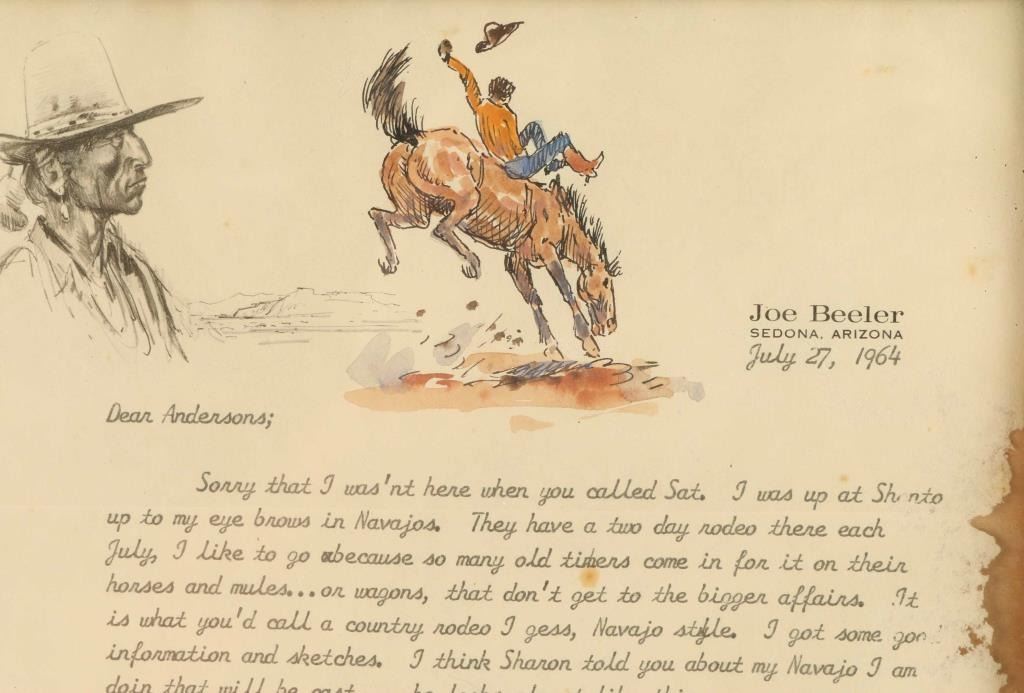 Joe Beeler
SEDONA, ARIZONA
July 27, 1964
Dear Andersons;
Sorry that I was'nt here when you called Sat. I was up at Sh nto
up to my eye brows in Navajos. They have a two day rodeo there each
July, I like to go because so many old timers come in for it on their
horses and mules...or wagons, that don't get to the bigger affairs. It
is what you'd call a country rodeo I gess, Navajo style. I got some goo
information and sketches. I think Sharon told you about my Navajo I am
doin that will be cast